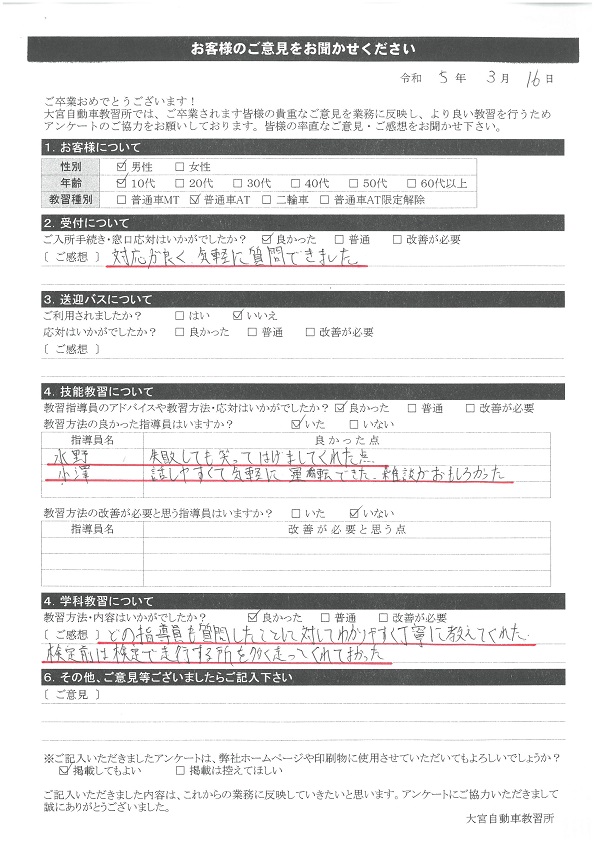 お客様のご意見をお聞かせください
令和 5 年 3 月 16 日
ご卒業おめでとうございます！
大宮自動車教習所では、ご卒業されます皆様の貴重なご意見を業務に反映し、より良い教習を行うため
アンケートのご協力をお願いしております。皆様の率直なご意見・ご感想をお聞かせ下さい。
1. お客様について
性別 ☑ 男性 □ 女性
年齢 ☑ 10代 □ 20代 □ 30代 □ 40代 □ 50代 □ 60代以上
教習種別 □ 普通車MT ☑ 普通車AT □ 二輪車 □ 普通車AT限定解除
2. 受付について
ご入所手続き・窓口応対はいかがでしたか？ ☑ 良かった □ 普通 □ 改善が必要
［ ご感想 ］ 対応が良く、気軽に質問できました
3. 送迎バスについて
ご利用されましたか？ □ はい ☑ いいえ
応対はいかがでしたか？ □ 良かった □ 普通 □ 改善が必要
［ ご感想 ］
4. 技能教習について
教習指導員のアドバイスや教習方法・応対はいかがでしたか？ ☑ 良かった □ 普通 □ 改善が必要
教習方法の良かった指導員はいますか？ ☑ いた □ いない
指導員名 良かった点
水野 失敗しても笑ってはげましてくれた点
小澤 話しやすくて気軽に運転できた。雑談がおもしろかった
教習方法の改善が必要と思う指導員はいますか？ □ いた ☑ いない
指導員名 改善が必要と思う点
4. 学科教習について
教習方法・内容はいかがでしたか？ ☑ 良かった □ 普通 □ 改善が必要
［ ご感想 ］ どの指導員も質問したことに対してわかりやすく丁寧に教えてくれた。
検定前は検定で走行する所を多く走ってくれてよかった
6. その他、ご意見等ございましたらご記入下さい
［ ご意見 ］
※ご記入いただきましたアンケートは、弊社ホームページや印刷物に使用させていただいてもよろしいでしょうか？
☑ 掲載してもよい □ 掲載は控えてほしい
ご記入いただきました内容は、これからの業務に反映していきたいと思います。アンケートにご協力いただきまして
誠にありがとうございました。
大宮自動車教習所